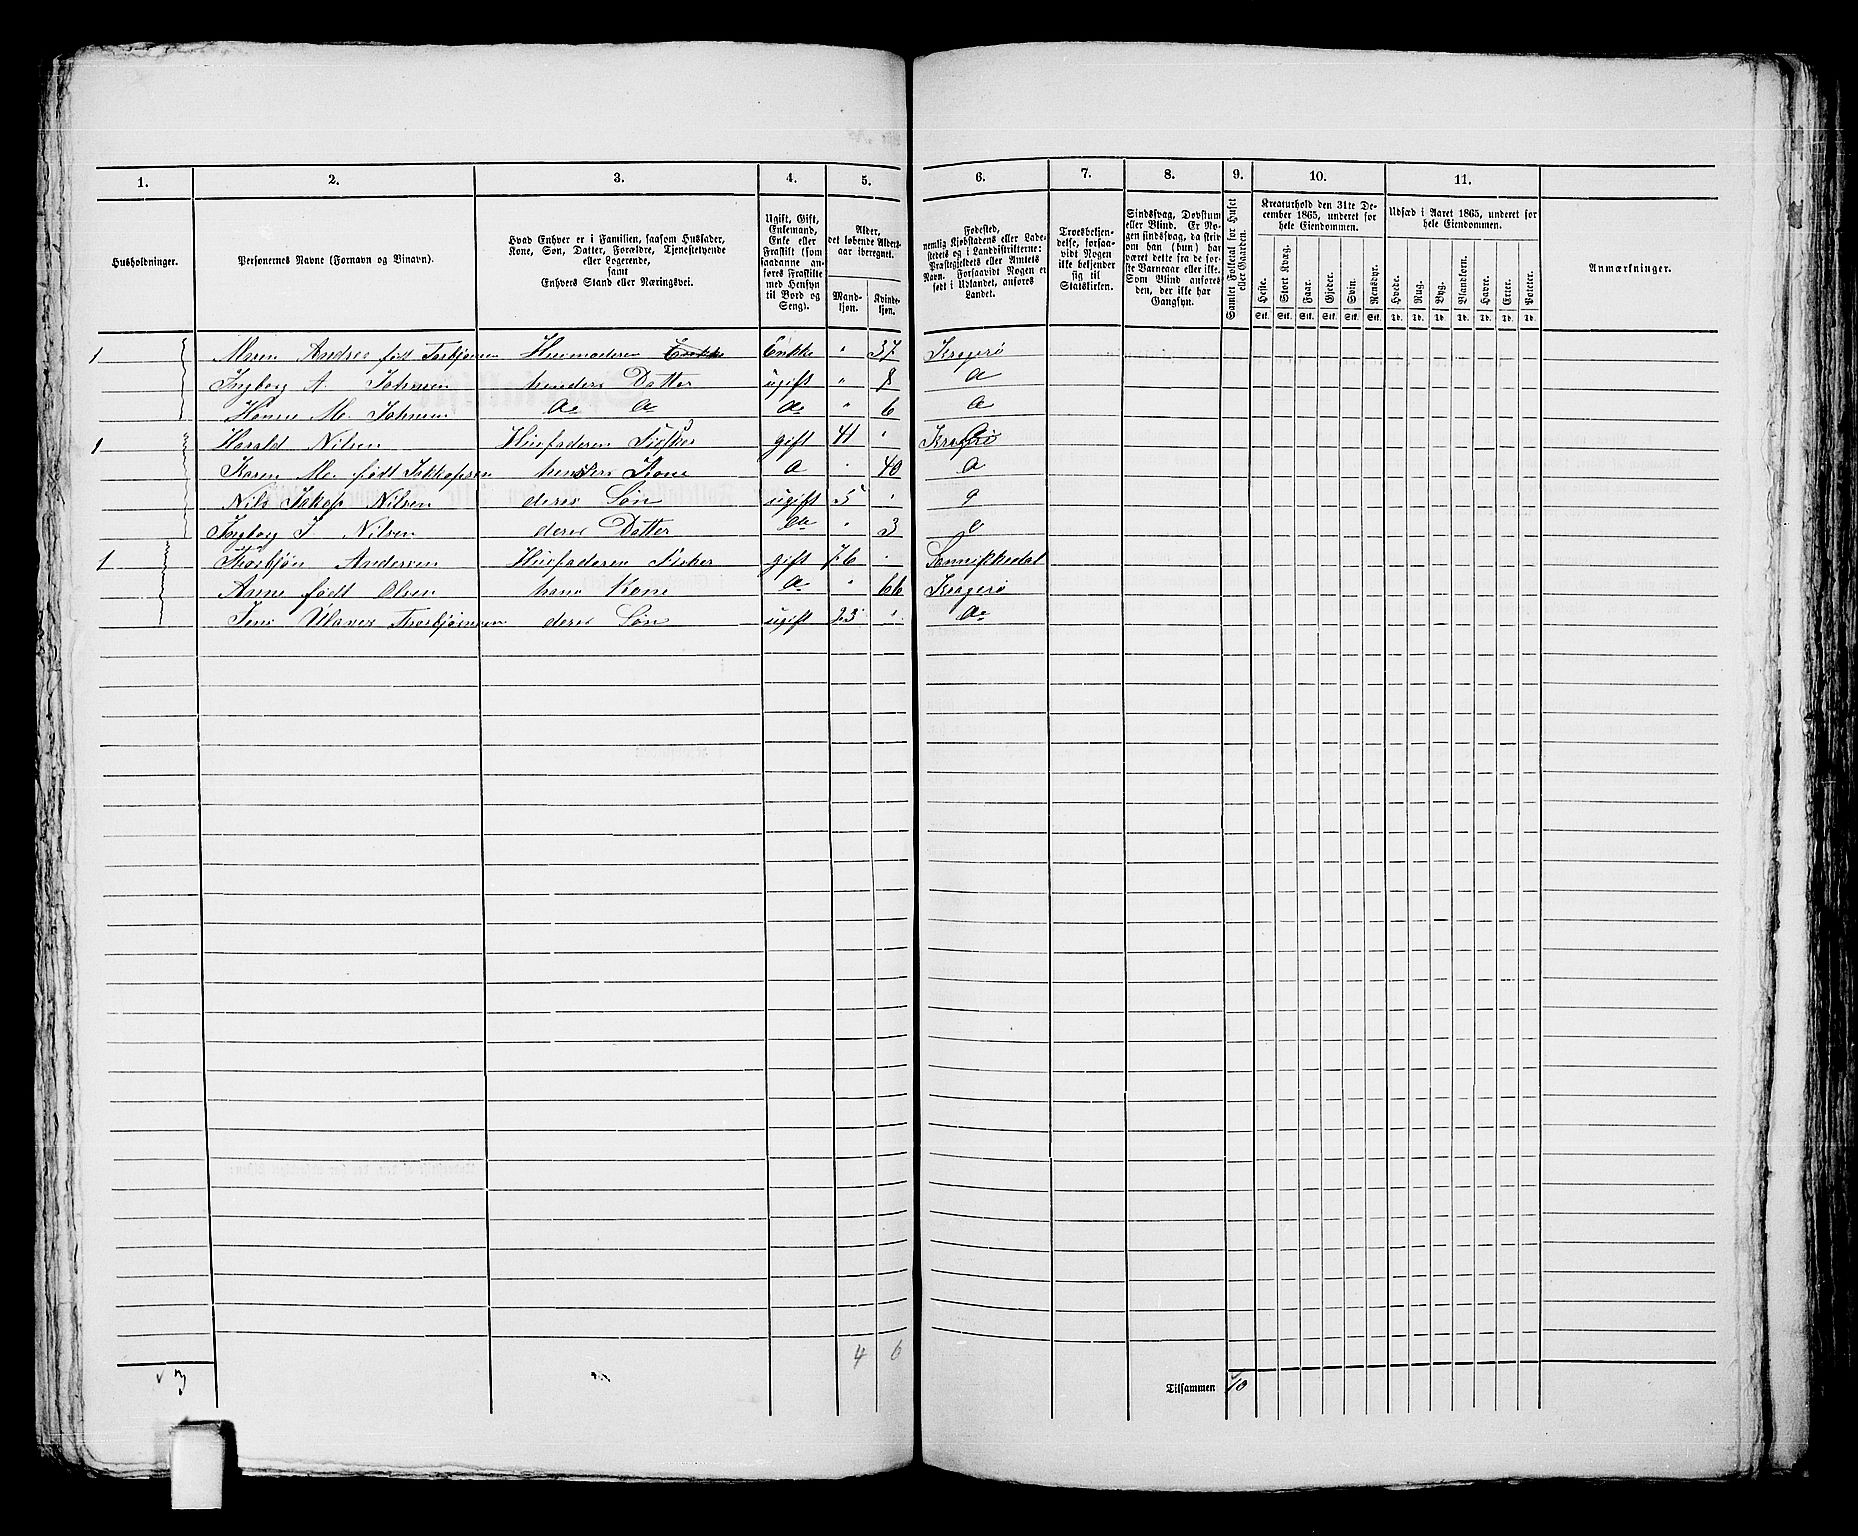 1. 2. 3. 4. 5. 6. 7. 8. 9. 10. 11.
Husholdninger.
Personernes Navne (Fornavn og Binavn).
Hvad Enhver er i Familien, saasom Husfader,
Kone, Søn, Datter, Forældre, Tjenestetyende
eller Logerende,
samt
Enhvers Stand eller Næringsvei.
Ugift, Gift,
Enkemand,
Enke eller
Fraskilt (som
saadanne an-
føres Fraskilte
med Hensyn
til Bord og
Seng).
Alder,
det løbende Alders-
aar iberegnet.
Mand-
kjøn.
Kvinde-
kjøn.
Fødested,
nemlig Kjøbstadens eller Lade-
stedets og i Landdistrikterne:
Præstegjeldets eller Amtets
Navn. Forsaavidt Nogen er
født i Udlandet, anføres
Landet.
Troesbekjen-
delse, forsaa-
vidt Nogen
ikke bekjender
sig til
Statskirken.
Sindssvag, Døvstum
eller Blind. Er No-
gen sindssvag, da skriv
om han (hun) har
været dette fra de før-
ste Barneaar eller ikke.
Som Blind anføres
den, der ikke har
Gangsyn.
Samlet Folketal for Huset
eller Gaarden.
Kreaturhold den 31te De-
cember 1865, underet for
hele Eiendommen.
Heste. Stort Kvæg. Faar. Gjeder. Svin. Rensdyr.
Stk. Stk. Stk. Stk. Stk. Stk.
Udsæd i Aaret 1865, underet for
hele Eiendommen.
Hvede. Rug. Byg. Blandkorn. Havre. Erter. Poteter.
Td. Td. Td. Td. Td. Td. Td.
Anmærkninger.
1 Andrea født Husmoderen Enke Enkke " 37 Kragerø
Ingborg A. Johnsen hendes Datter ugift " 8 a
M. Johnsen do a do " 6 a
1 Harald Nilsen Husfaderen gift 41 " Kragerø
Karen M. født Kone a " 40 a
Nils Jakop Nilsen deres Søn ugift 5 "
Ingborg J Nilsen deres Datter do " 3
1 Thorbjøn Andersen Husfaderen Fisker gift 76 " Sannikkedal
Anne født Olsen hans Kone a " 66 Kragerø
Jens Thorbjørnsen deres Søn ugift 23 " do
4 6
3
Tilsammen 10